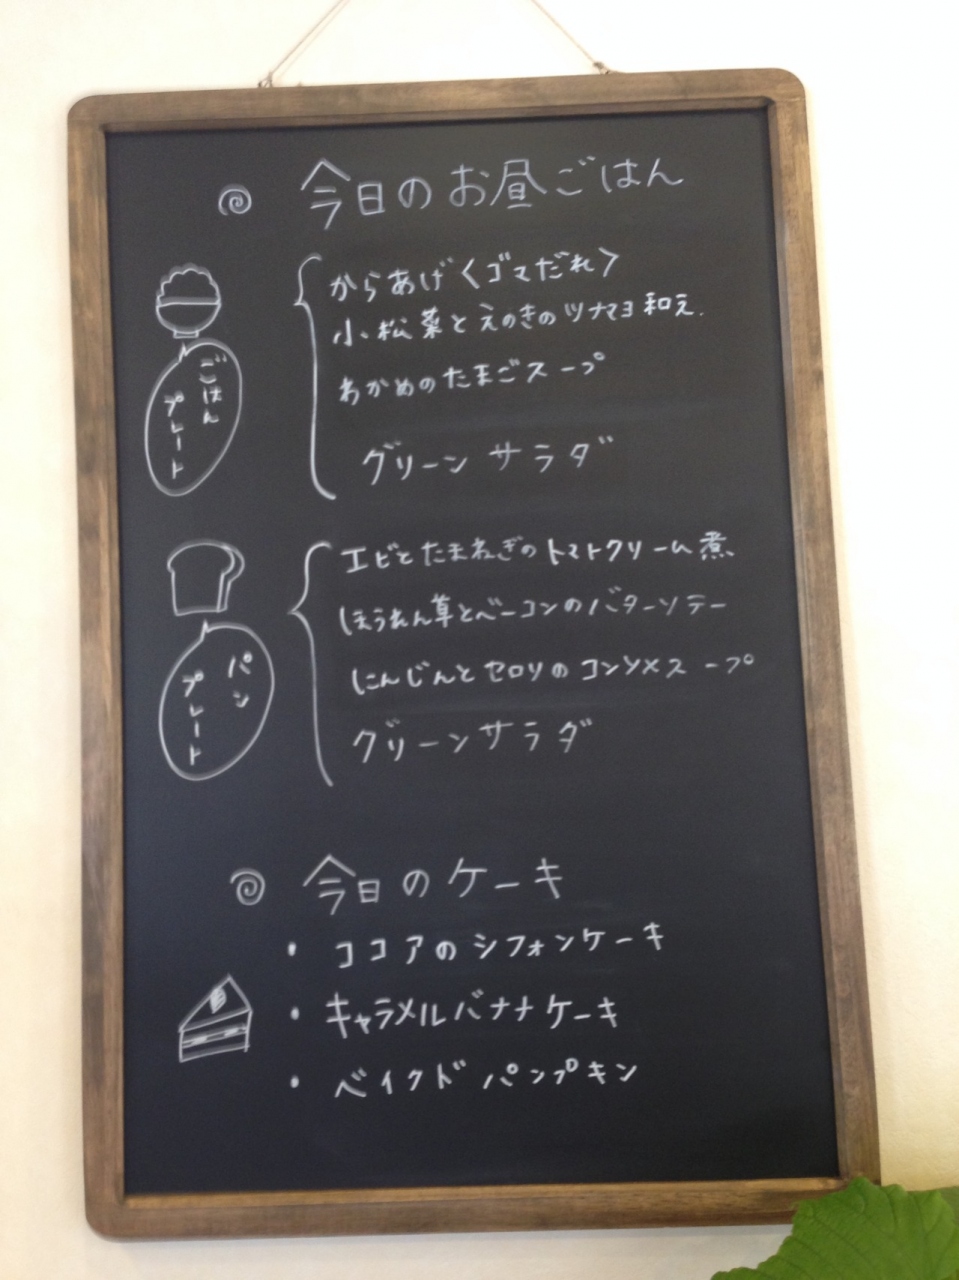 今日のお昼ごはん
ごはん
プレート
からあげ〈ゴマだれ〉
小松菜とえのきのツナマヨ和え.
わかめのたまごスープ
グリーンサラダ
パン
プレート
エビとたまねぎのトマトクリーム煮
ほうれん草とベーコンのバターソテー
にんじんとセロリのコンソメスープ
グリーンサラダ
今日のケーキ
・ ココアのシフォンケーキ
・ キャラメルバナナケーキ
・ ベイクドパンプキン